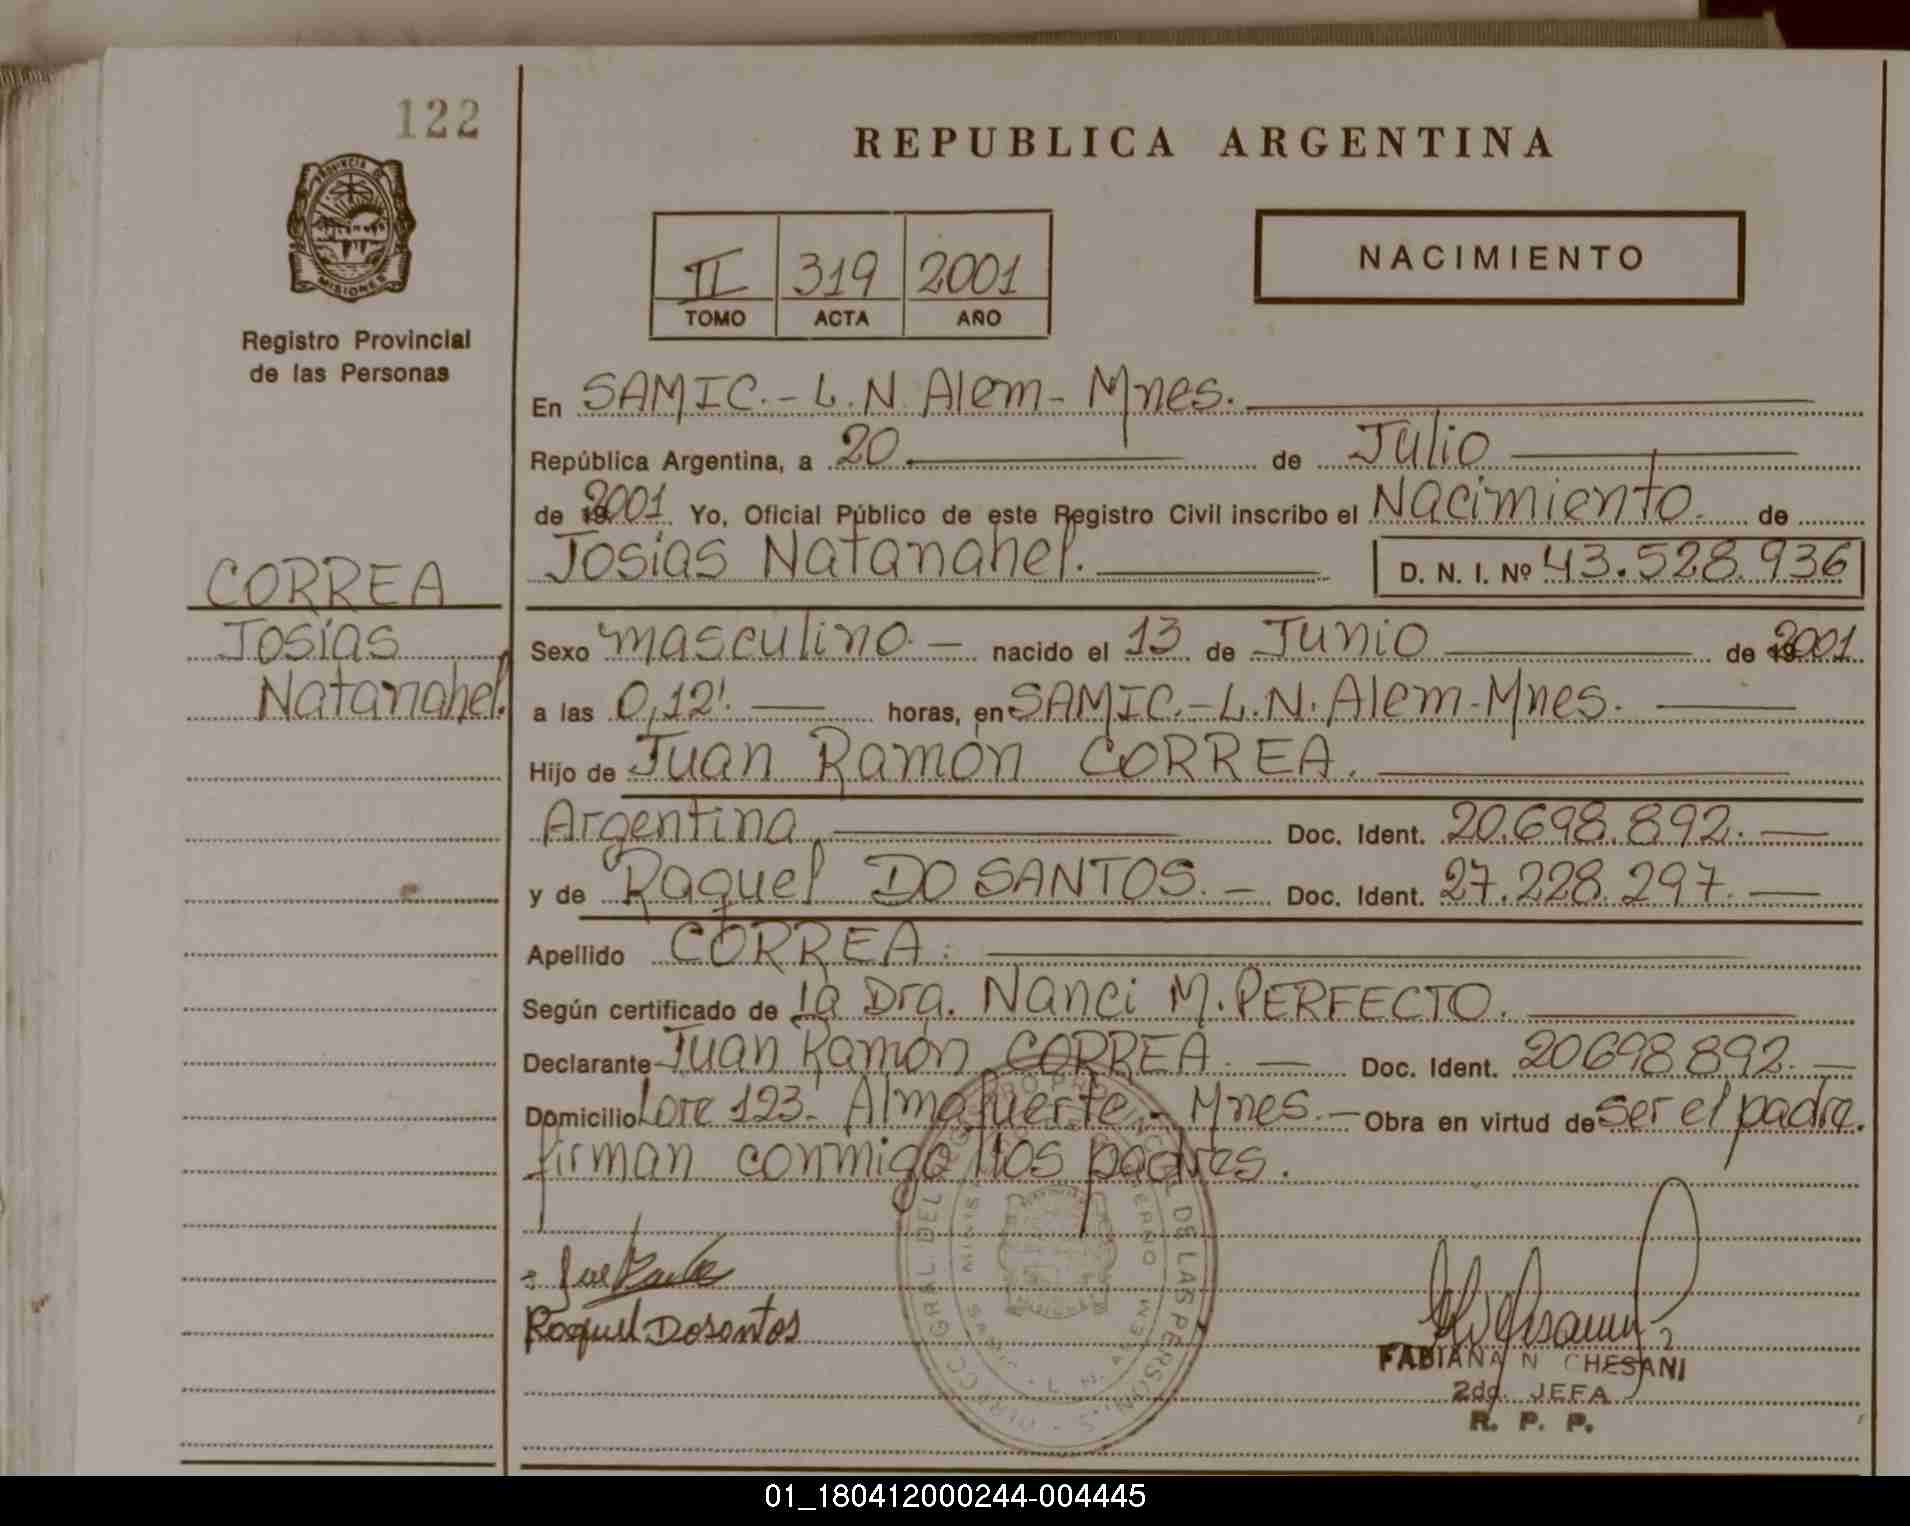 122
PROVINCIA DE
MISIONES
Registro Provincial
de las Personas
CORREA
Josías
Natanahel.
REPUBLICA ARGENTINA
II 319 2001
TOMO ACTA AÑO
NACIMIENTO
En SAMIC.-L.N.Alem-Mnes.
República Argentina, a 20 de Julio
de 2001 Yo, Oficial Público de este Registro Civil inscribo el Nacimiento. de
Josías Natanahel. D. N. I. Nº 43.528.936
Sexo masculino.- nacido el 13 de Junio de 2001
a las 0,12'. horas, en SAMIC.-L.N.Alem-Mnes.
Hijo de Juan Ramón CORREA.
Argentina Doc. Ident. 20.698.892.-
y de Raquel DO SANTOS.- Doc. Ident. 27.228.297.-
Apellido CORREA.
Según certificado de la Dra. Nanci M. PERFECTO.
Declarante Juan Ramón CORREA.- Doc. Ident. 20698892.-
Domicilio Lote 123- Almafuerte.- Mnes.- Obra en virtud de ser el padre.
firman conmigo los padres.
Raquel Dosantos
FABIANA N CHESANI
2da. JEFA
R. P. P.
01_180412000244-004445